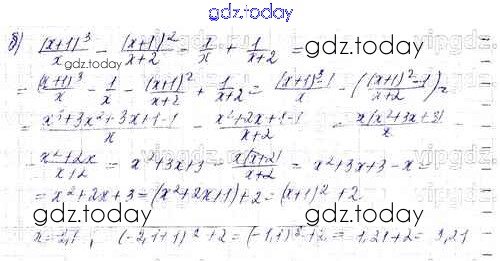 gdz.today
б) (x+1)³/x - (x+1)²/(x+2) - 1/x + 1/(x+2) =
gdz.today gdz.today
= (x+1)³/x - 1/x - (x+1)²/(x+2) + 1/(x+2) = ((x+1)³-1)/x - ((x+1)²-1)/(x+2) =
= (x³+3x²+3x+1-1)/x - (x²+2x+1-1)/(x+2) = x(x²+3x+3)/x -
- (x²+2x)/(x+2) = x²+3x+3 - x(x+2)/(x+2) = x²+3x+3-x =
= x²+2x+3 = (x²+2x+1)+2 = (x+1)²+2
gdz.today gdz.today
x=-2,1; (-2,1+1)²+2 = (-1,1)²+2 = 1,21+2 = 3,21